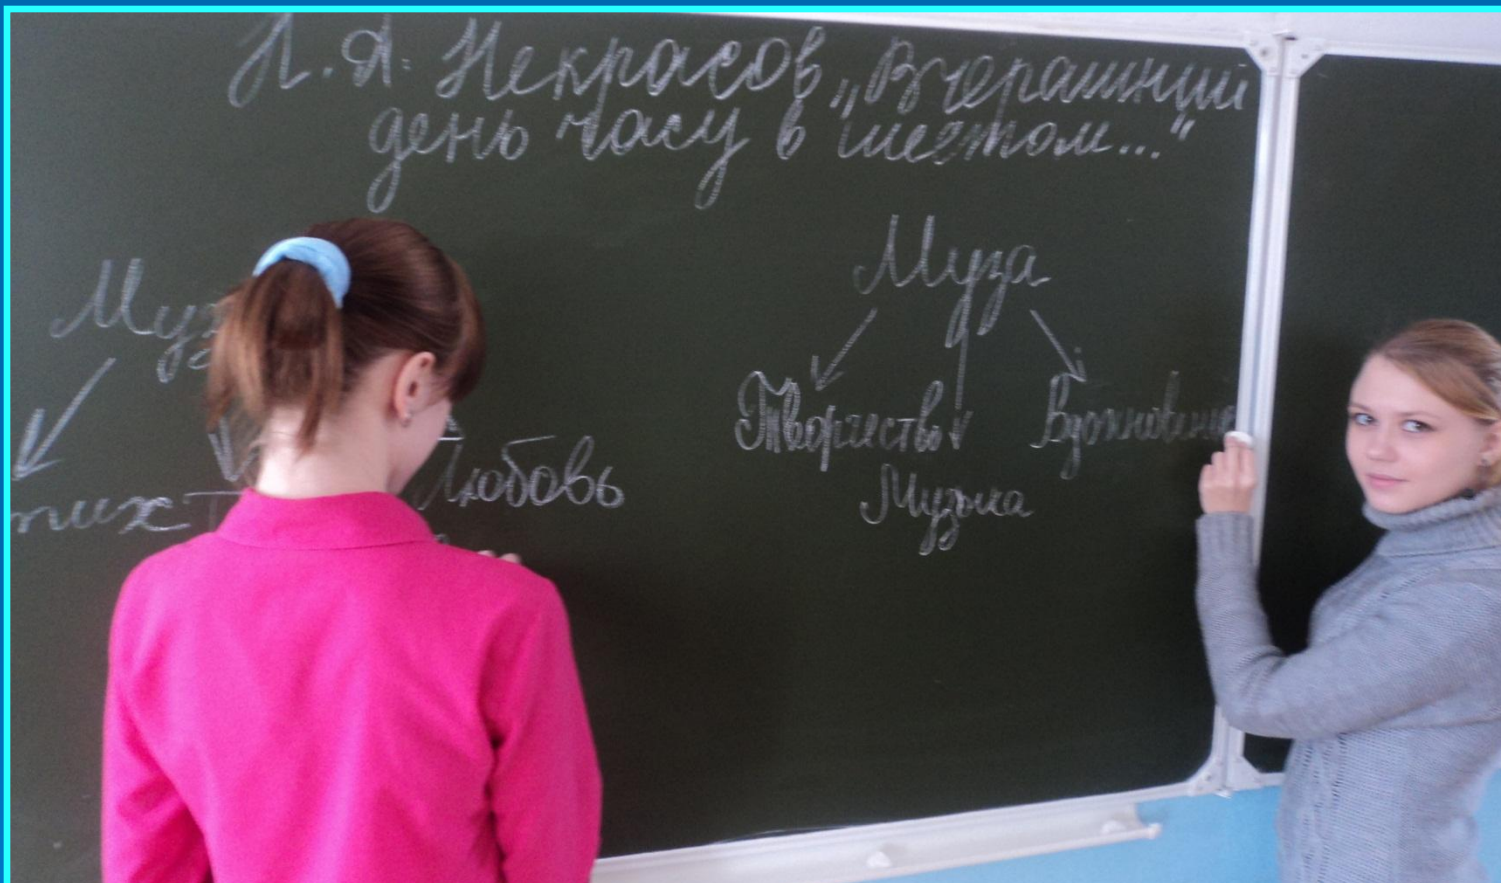 Н. А. Некрасов „Вчерашний
день часу в шестом..."
Муз
тих Т Любовь
Муза
Творчество Вдохновение
Музыка